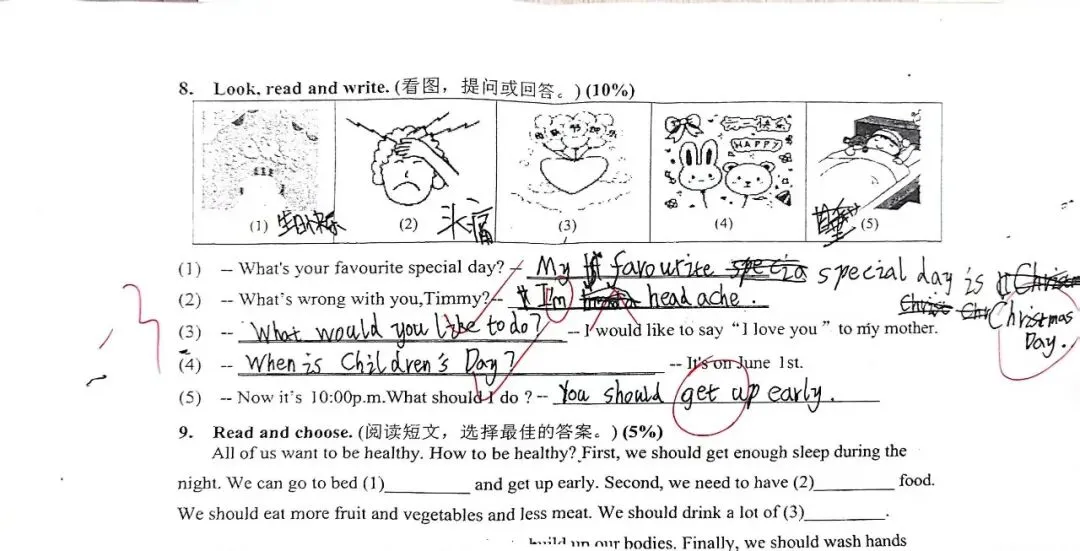 8. Look, read and write. (看图，提问或回答。) (10%)
HAPPY
(1) 生日快乐 (2) 头痛 (3) (4) 睡 (5)
(1) -- What's your favourite special day? -- My favourite special day is Christmas Day.
(2) -- What's wrong with you,Timmy?-- I'm headache.
(3) -- What would you like to do? -- I would like to say “I love you” to my mother.
(4) -- When is Children's Day? -- It's on June 1st.
(5) -- Now it's 10:00p.m.What should I do ? -- You should get up early.
9. Read and choose. (阅读短文，选择最佳的答案。) (5%)
All of us want to be healthy. How to be healthy? First, we should get enough sleep during the
night. We can go to bed (1)________ and get up early. Second, we need to have (2)________ food.
We should eat more fruit and vegetables and less meat. We should drink a lot of (3)________.
build up our bodies. Finally, we should wash hands